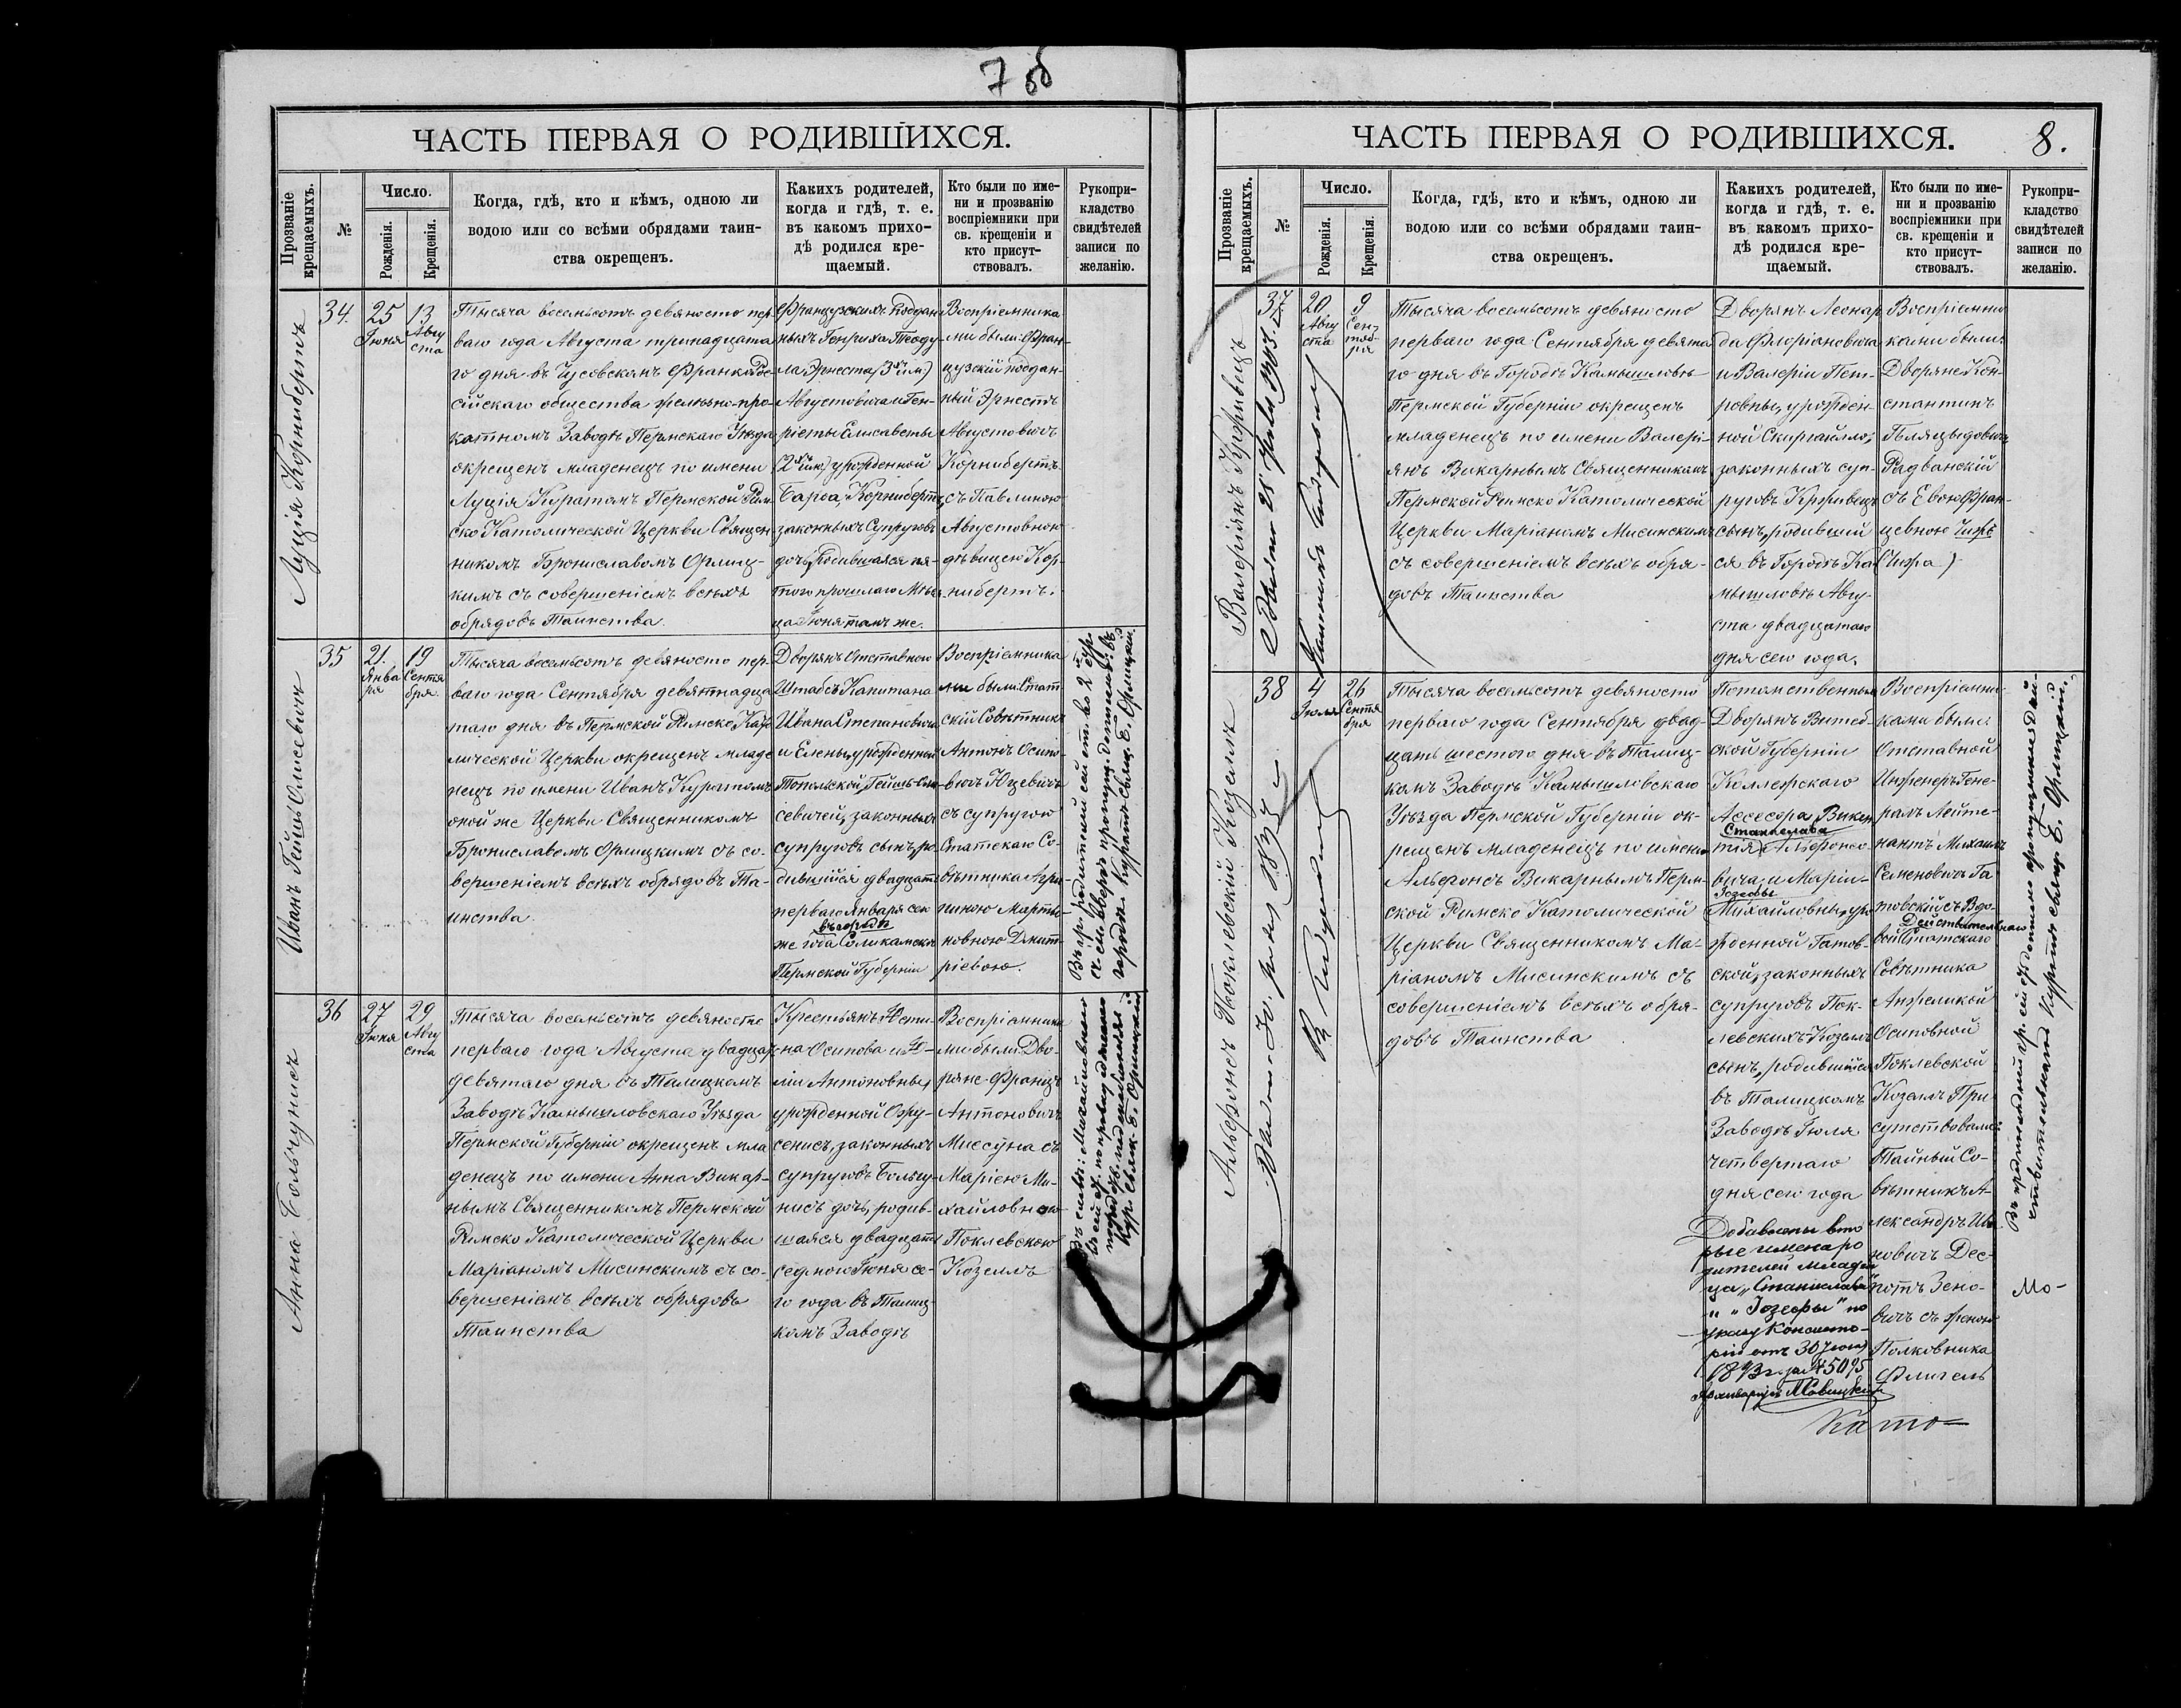 7 об
ЧАСТЬ ПЕРВАЯ О РОДИВШИХСЯ.
Прозваніе
крещаемыхъ.
№
Число.
Рожденія.
Крещенія.
Когда, гдѣ, кто и кѣмъ, одною ли
водою или со всѣми обрядами таин-
ства окрещенъ.
Какихъ родителей,
когда и гдѣ, т. е.
въ какомъ прихо-
дѣ родился кре-
щаемый.
Кто были по име-
ни и прозванію
воспріемники при
св. крещеніи и
кто присут-
ствовалъ.
Рукопри-
кладство
свидѣтелей
записи по
желанію.
Луція Корниберть
34.
25
Іюня
13
Авгу
ста
Тысяча восемьсотъ девяносто пер-
ваго года Августа тринадцата
го дня въ Чусовскомъ Франко Рос-
сійскаго общества желѣзно-про-
катномъ Заводѣ Пермскаго Уѣзда
окрещенъ младенецъ по имени
Луція Куратомъ Пермской Рим
ско Католической Церкви Священ-
никомъ Брониславомъ Орлиц-
кимъ съ совершеніемъ всѣхъ
обрядовъ Таинства.
Французскихъ Поддан
ныхъ Генриха Теоду-
ла Эрнеста (3 хъ им)
Августовича и Ген-
ріеты Елисаветы
урожденной
Корниберть,
законныхъ Супруговъ
дочь, родившаяся
того прошлаго Мѣся
ца Іюня тамъ же.
Воспріемника
ми были: Фран-
цузскій поддан-
ный Эрнестъ
Августовичъ
Корниберть
съ Павлиною
Августовною
дѣвицею Кор-
ниберть.
Иванъ Гейшъ Олисевичъ
35
21.
Янва
ря
19
Сентя
бря
Тысяча восемьсотъ девяносто пер-
ваго года Сентября девятнадца
таго дня въ Пермской Римско Като
лической Церкви окрещенъ младе
нецъ по имени Иванъ Куратомъ
оной же Церкви Священникомъ
Брониславомъ Орлицкимъ съ со-
вершеніемъ всѣхъ обрядовъ Та-
инства
Дворянъ Отставнаго
Штабсъ Капитана
Ивана Степановича
и Елены, урожденной
Топольской, Гейшъ Оли
севичей, законныхъ
супруговъ сынъ, ро
дившійся двадцать
перваго Января сего
въ городѣ
же года Соликамскѣ
Пермской Губерніи
Воспріемника
ми были: Стат
скій Совѣтникъ
Антонъ Осипо-
вичъ Юцевичъ
съ супругою
Статскаго Со-
вѣтника Агри-
пиною Марты-
новною Дмит-
ріевою.
Анна Больчунисъ
36
27
Іюня
29
Авгу
ста
Тысяча восемьсотъ девяносто
перваго года Августа двадцать
девятаго дня въ Талицкомъ
Заводѣ Камышловскаго Уѣзда
Пермской Губерніи окрещенъ мла
денецъ по имени Анна Викар-
нымъ Священникомъ Пермской
Римско Католической Церкви
Маріаномъ Мисинскимъ съ со-
вершеніемъ всѣхъ обрядовъ
Таинства
Крестьянъ Юсти-
на Осипова и Ю-
ліи Антоновны,
урожденной
законныхъ
супруговъ Больчу-
нисъ дочь, родив-
шаяся двадцать
седмого Іюня се-
го года въ Талиц-
комъ Заводѣ
Воспріемника
ми были: Дво-
ряне Францъ
Антоновичъ
Миссуна съ
Маріею Ми-
хайловною
Поклевскою
Козеллъ
ЧАСТЬ ПЕРВАЯ О РОДИВШИХСЯ.
8.
Прозваніе
крещаемыхъ.
№
Число.
Рожденія.
Крещенія.
Когда, гдѣ, кто и кѣмъ, одною ли
водою или со всѣми обрядами таин-
ства окрещенъ.
Какихъ родителей,
когда и гдѣ, т. е.
въ какомъ прихо-
дѣ родился кре-
щаемый.
Кто были по име-
ни и прозванію
воспріемники при
св. крещеніи и
кто присут-
ствовалъ.
Рукопри-
кладство
свидѣтелей
записи по
желанію.
Валеріянъ Крживецъ
37
20
Авгу
ста
9
Сен-
тяб-
ря
Тысяча восемьсотъ девяносто
перваго года Сентября девята
го дня въ Городѣ Камышловѣ
Пермской Губерніи окрещенъ
младенецъ по имени Валері-
янъ Викарнымъ Священникомъ
Пермской Римско Католической
Церкви Маріаномъ Мисинскимъ
съ совершеніемъ всѣхъ обря-
довъ Таинства
Дворянъ Леонар
да Флоріановича
и Валеріи Пет-
ровны, урожден-
ной Скиргайлло,
законныхъ суп-
руговъ Крживецъ
сынъ, родивший
ся въ Городѣ Ка
мышловѣ Авгу-
ста двадцатаго
дня сего года.
Воспріемни
ками были:
Дворяне Кон-
стантинъ
Радванскій
съ Евою Фран-
цевною Чижъ
Альфонсъ Поклевскій Козеллъ
38
4
Іюля
26
Сентя
бря
Тысяча восемьсотъ девяносто
перваго года Сентября двад-
цать шестого дня въ Талиц-
комъ Заводѣ Камышловскаго
Уѣзда Пермской Губерніи ок-
рещенъ младенецъ по имени
Альфонсъ Викарнымъ Перм-
ской Римско Католической
Церкви Священникомъ Ма-
ріаномъ Мисинскимъ съ
совершеніемъ всѣхъ обря-
довъ Таинства
Потомственныхъ
Дворянъ Витеб-
ской Губерніи
Коллежскаго
Ассесора Викен
Станислава
тія Альфонсо-
вича, и Маріи
Іозефы
Михайловны, уро
жденной Гатов-
ской, законныхъ
супруговъ Пок-
левскихъ Козеллъ
сынъ, родившійся
въ Талицкомъ
Заводѣ Іюля
четвертаго
дня сего года
Добавлены вто
рые имена ро
дителей младен
ца „Станислава"
и „Іозефы" по
указу Консисто-
ріи отъ 30 Іюня
1893 г. за № 5095
Воспріемни-
ками были:
Отставной
Инженеръ Гене-
ралъ Лейте-
нантъ Михаилъ
Семеновичъ Га
товскій съ Вдо-
Действительнаго
вой Статскаго
Совѣтника
Анжеликой
Осиповной
Поклевской
Козеллъ При
сутствовали:
Тайный Со-
вѣтникъ А-
лександръ Ива-
новичъ Дес-
потъ Зено-
вичъ съ женою
Полковника
Флигель
Мо-